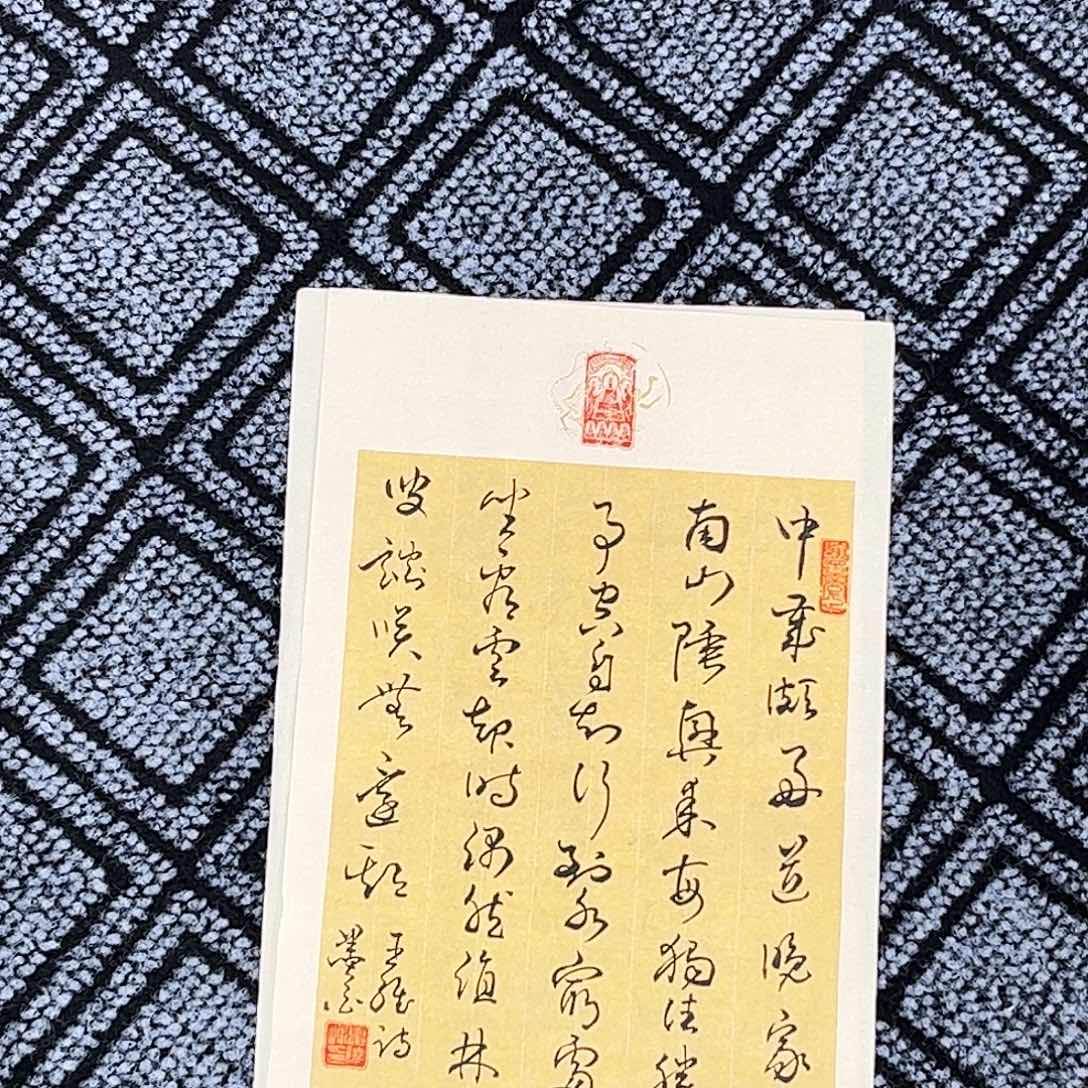 中歲頗好道晚家
南山陲興來每獨往勝
事空自知行到水窮處
坐看雲起時偶然值林
叟談咲無還期
王維詩